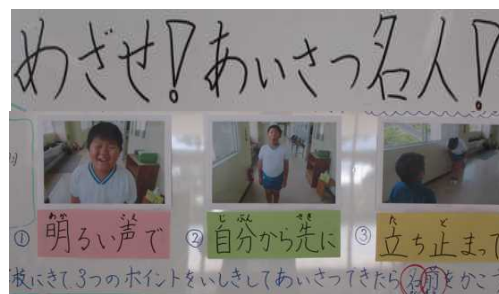 めざせ！あいさつ名人！
① 明るい声で
② 自分から先に
③ 立ち止まって
にきて3つのポイントをいしきしてあいさつできたら名前をかこ